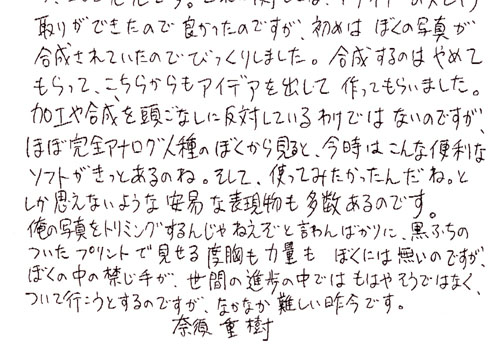 取りができたので良かったのですが、初めは ぼくの写真が
合成されていたのでびっくりしました。合成するのはやめて
もらって、こちらからもアイデアを出して 作ってもらいました。
加工や合成を頭ごなしに反対しているわけでは ないのですが、
ほぼ完全アナログ人種のぼくから見ると、今時はこんな便利な
ソフトがきっとあるのね。そして、使ってみたかったんだね。と
しか思えないような 安易な表現物も多数あるのです。
俺の写真をトリミングするんじゃねえぞと言わんばかりに、黒ぶちの
ついた プリントで見せる度胸も力量も ぼくには無いのですが、
ぼくの中の禁じ手が、世間の進歩の中では もはやそうではなく、
ついて行こうとするのですが、なかなか難しい昨今です。
奈須 重樹